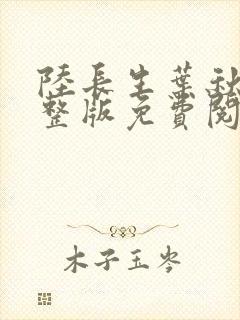 陸長生葉秋
整版免費閱
木子玉岑